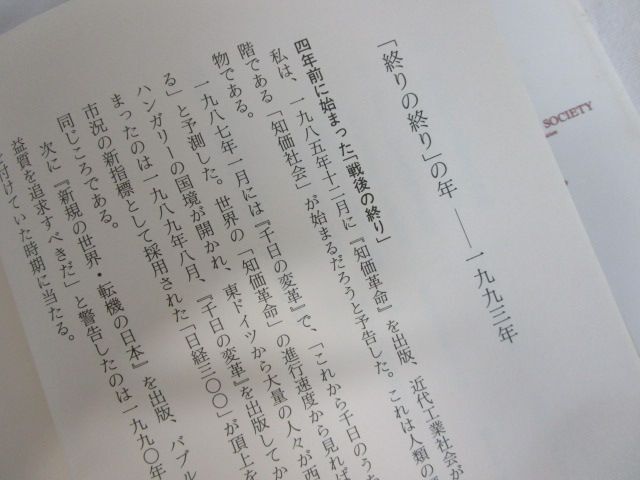 「終りの終り」の年――一九九三年
四年前に始まった「戦後の終り」
私は、一九八五年十二月に『知価革命』を出版、近代工業社会が
階である「知価社会」が始まるだろうと予告した。これは人類の
物である。
一九八七年一月には『千日の変革』で、「これから千日のうち
る」と予測した。世界の「知価革命」の進行速度から見れば
ハンガリーの国境が開かれ、東ドイツから大量の人々が西
まったのは一九八九年八月、『千日の変革』を出版してか
市況の新指標として採用された「日経三〇〇」が頂上を
同じころである。
次に『新規の世界・転機の日本』を出版、バブル
益質を追求すべきだ」と警告したのは一九九〇年
付けていた時期に当たる。
SOCIETY